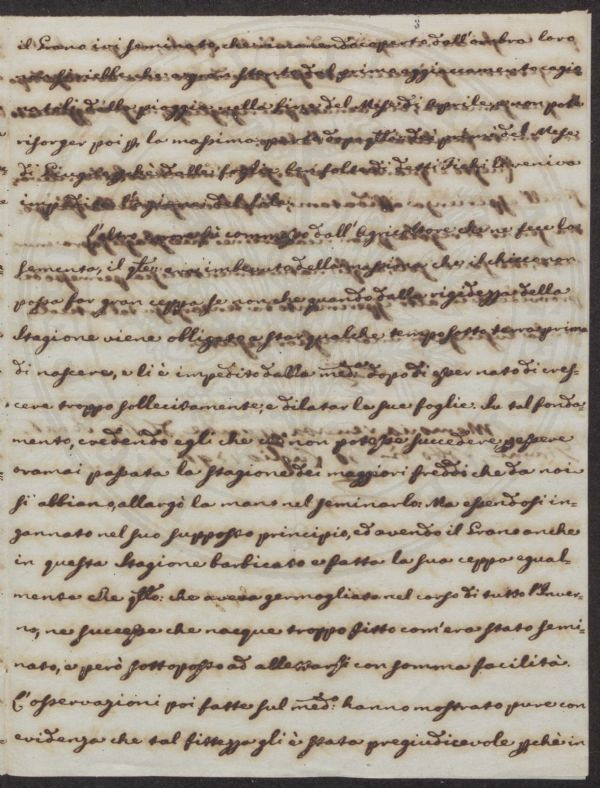 3
il Grano ivi seminato, che rimanendo coperto dall'ombra loro
del primo agghiacciamento cagio
natoli dalle pioggie nella fine del Mese di Aprile, e non potè
risorger poi p. la massima parte dopo gli dei primi del Mese
di Giugno, pchè dalle foglie ben folte di detti veniva
impedito l'azione del Sole.
L'altro commesso dall'Agricoltore che ne fece la
sementa, il qle era imbevuto della massima che il chicco non
possa far gran ceppa se non che quando dalla rigidezza della
Stagione viene obligato a star qualche tempo sotto terra prima
di nascere, e li è impedito dalla med.ma dopo di esser nato di cres-
cere troppo sollecitamente, e dilatar le sue foglie. In tal fonda-
mento, credendo egli che ciò non potesse succedere p essere
oramai passata la Stagione dei maggiori freddi che da noi
si abbiano, allargò la mano nel seminarlo. Ma essendosi in-
gannato nel suo supposto principio, ed avendo il Grano anche
in questa Stagione barbicato e fatta la sua ceppa egual-
mente che qllo: che aveva germogliato nel corso di tutto l'Inver-
no, ne successe che nacque troppo fitto com'era stato semi-
nato, e però sottoposto ad allettarsi con somma facilità.
L'osservazioni poi fatte sul med.mo: hanno mostrato pure con
evidenza che tal fittezza gli è stata pregiudicevole pchè in